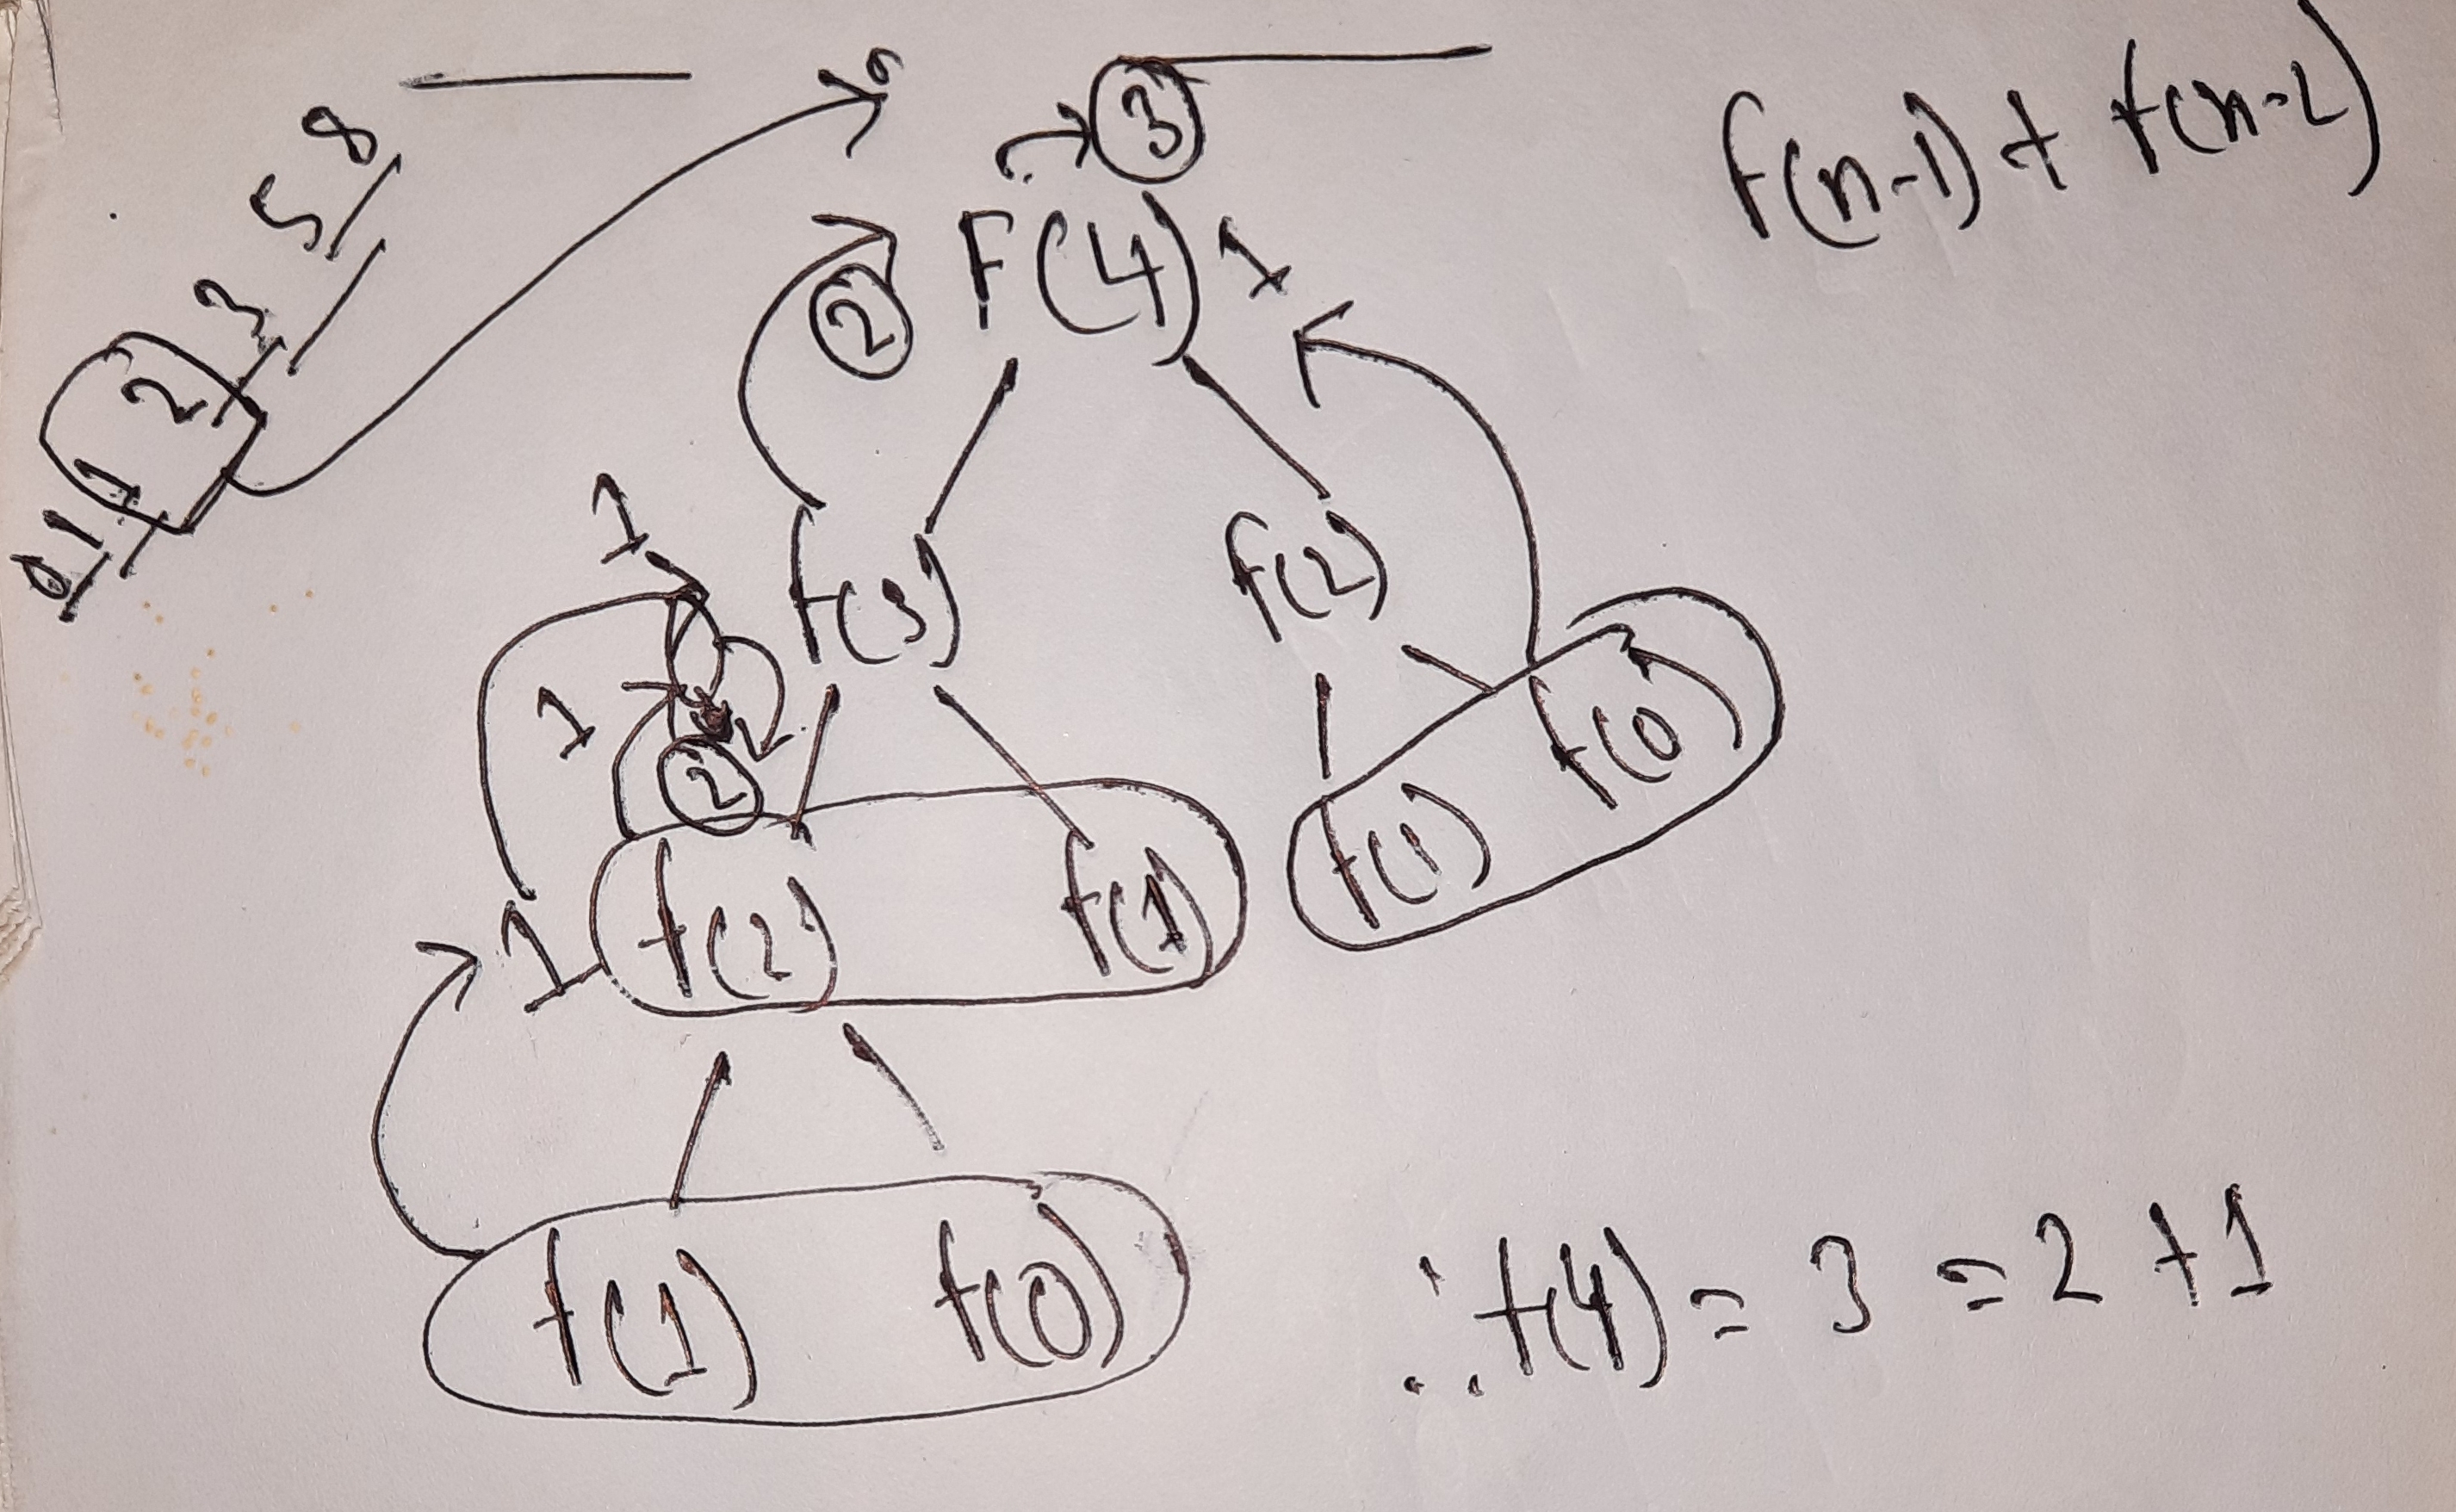 0 1 1 2 3 5 8
3
f(n-1) + f(n-2)
2 F(4) 1
1 f(3) f(2)
1
2 f(1) f(0)
1 f(2) f(1)
f(1) f(0)
∴ f(4) = 3 = 2 + 1